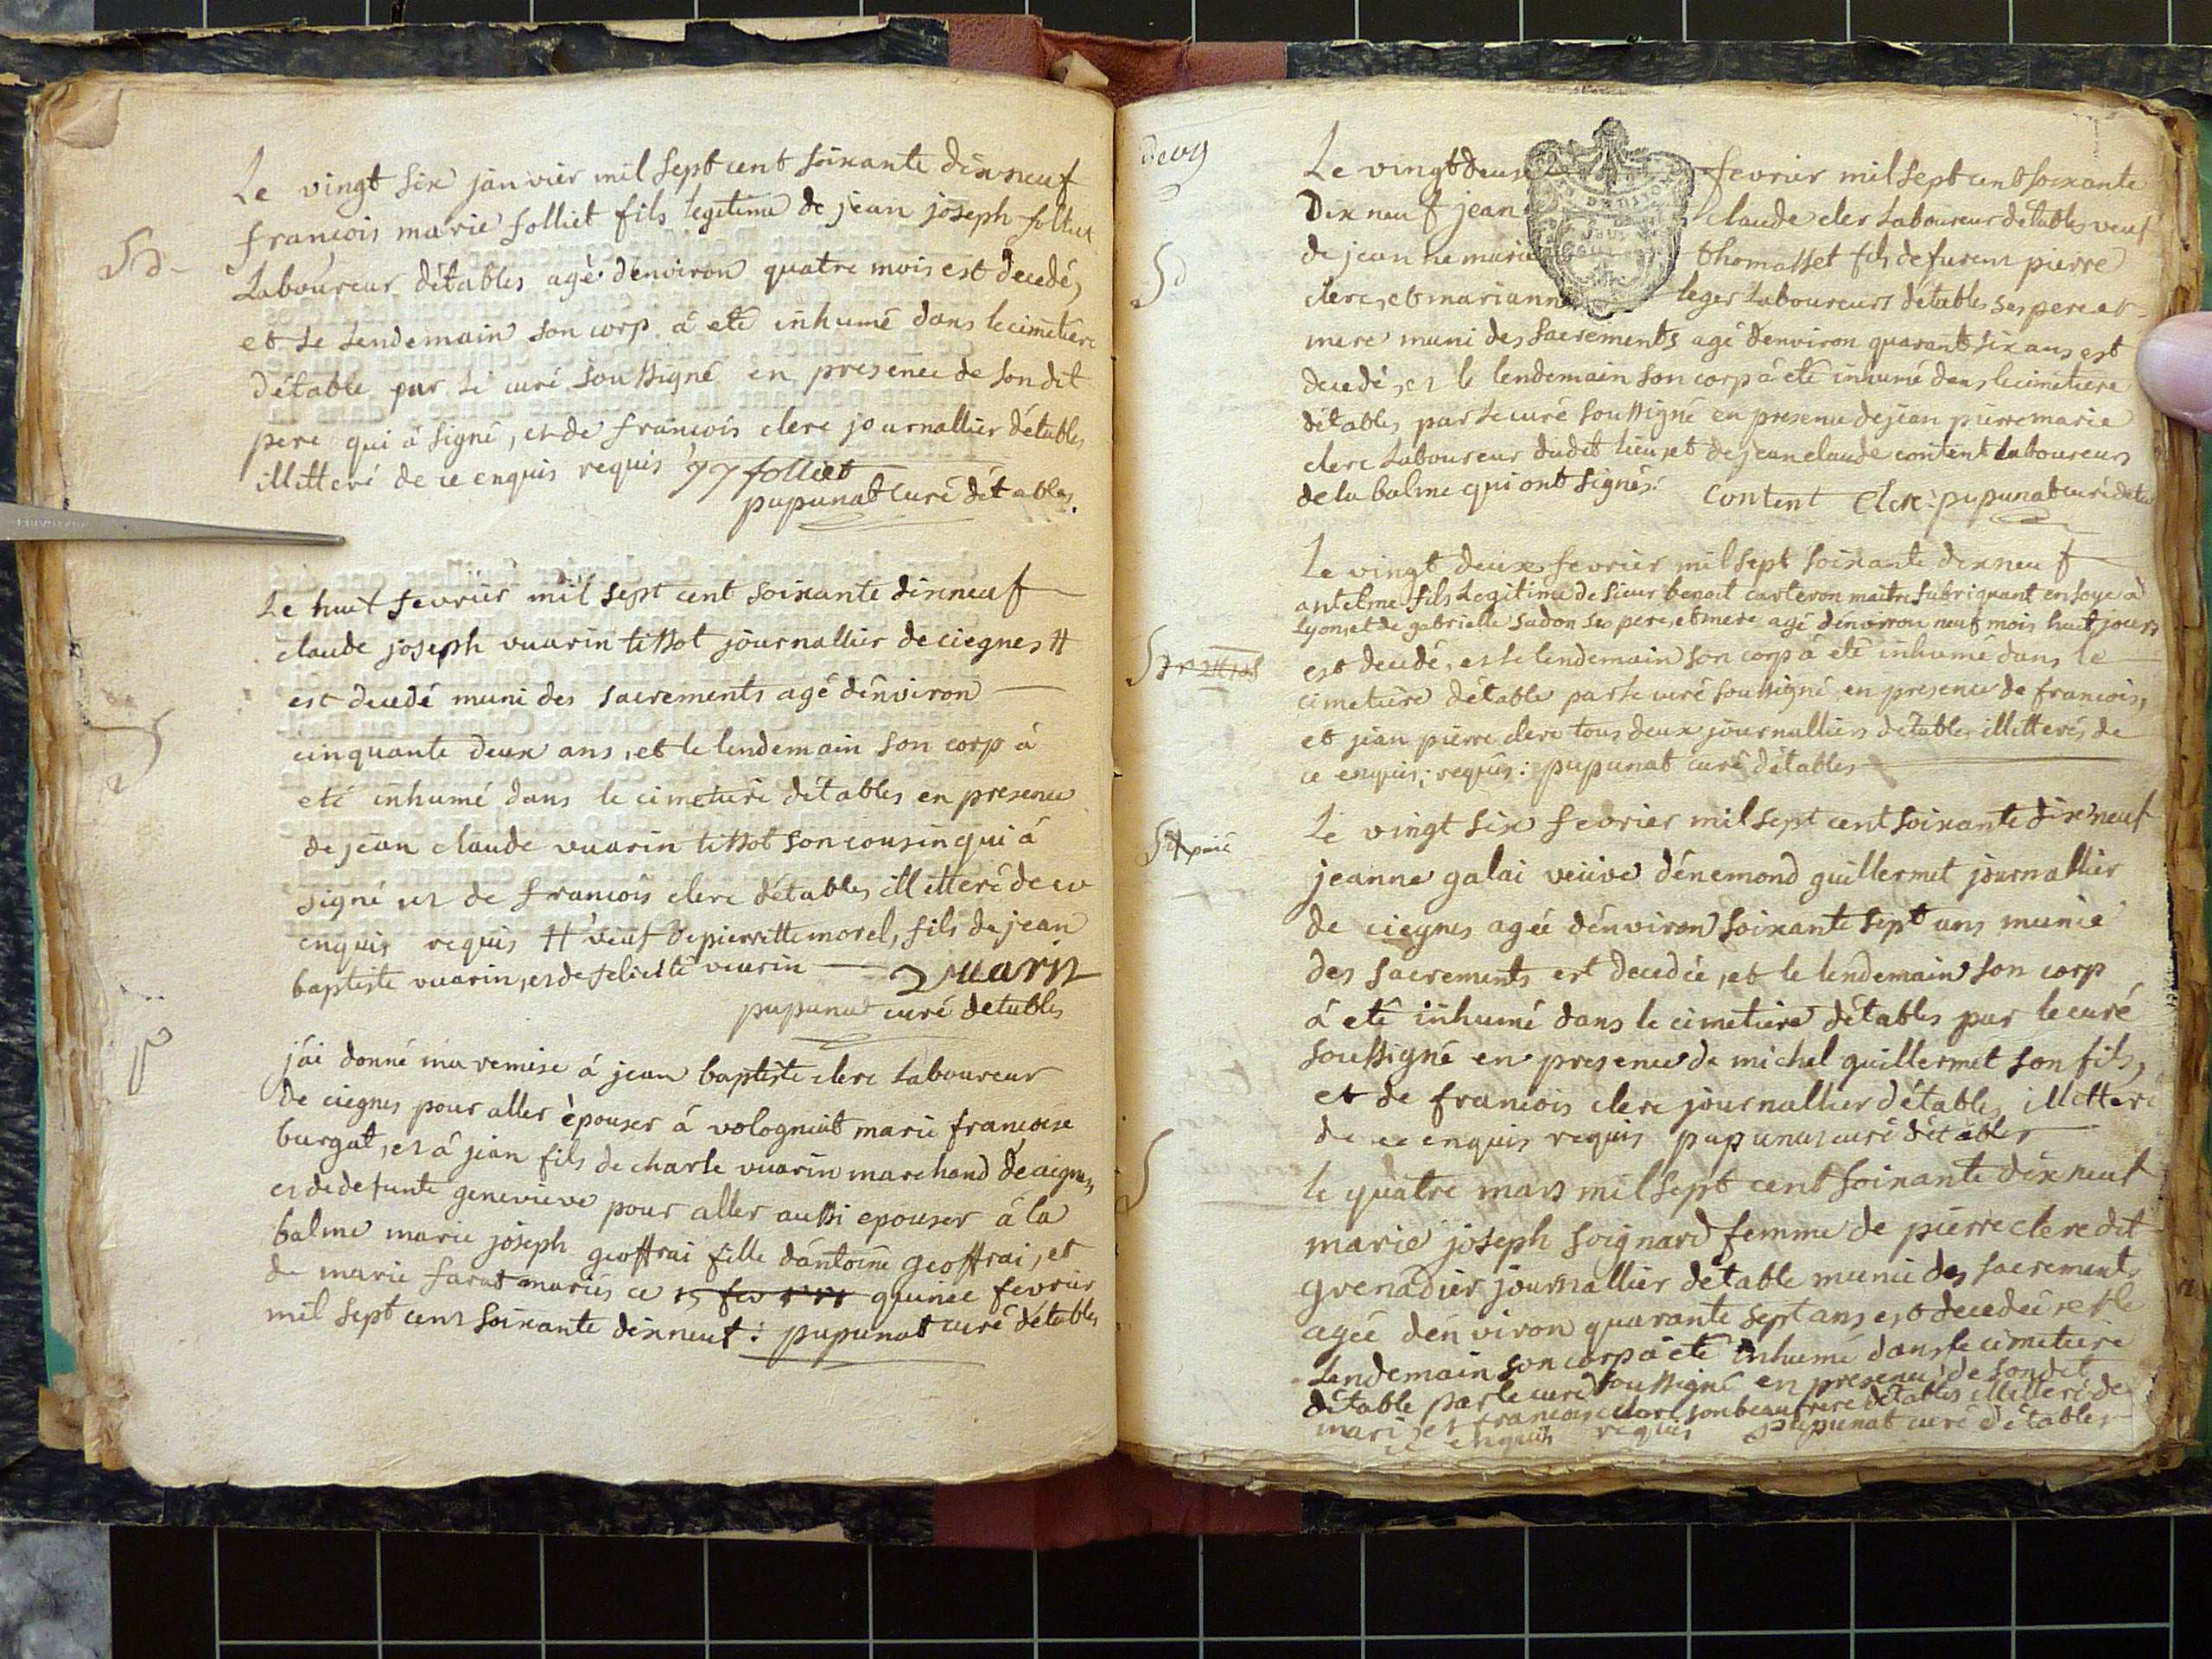 Le vingt six janvier mil sept cent soixante dix neuf
françois marie folliet fils legitime de jean joseph folliet
Laboureur détables agé d'environ quatre mois est decedé,
et le Lendemain son corp à eté inhumé dans le cimetiere
détable par le curé soussigné en presence de son dit
pere qui à signé, et de françois clerc journallier détables
illitteré de ce enquis requis JJ folliet
pupunat curé détables.
Le huit fevrier mil sept cent soixante dix neuf
claude joseph vuarin tissot journallier de ciegnes #
est decedé muni des sacrements agé dénviron
cinquante deux ans, et le lendemain son corp à
eté inhumé dans le cimetiere détables en presence
de jean claude vuarin tissot son cousin qui à
signé et de francois clerc détables illitteré de ce
enquis requis # veuf de pierrette morel, fils de jean
baptiste vuarin, et de vuarin vuarin
pupunat curé détables
j'ai donné ma remise à jean baptiste clerc Laboureur
de ciegnes pour aller èpouser à volognat marie francoise
burgat, et à jean fils de charle vuarin marchand de ciegnes,
et de defunte genevieve pour aller aussi epouser à la
balme marie joseph geoffrai fille dántoine geoffrai, et
de marie farat mariés ce 15 fev quince fevrier
mil sept cent soixante dix neuf : pupunat curé détables
Le vingt deux fevrier mil sept cent soixante
Dix neuf jean claude clerc Laboureur détables veuf
de jeanne marie thomasset fils de furent pierre
clerc, et marianne leger Laboureurs détables ses pere et
mere muni des sacrements agé dénviron quarant six ans est
decedé, et le lendemain son corp à eté inhumé dans le cimetiere
détables, par le curé soussigné en presence de jean pierre marie
clerc Laboureur dudit lieu, et de jean claude content Laboureurs
de la balme qui ont signés. Content Clerc pupunat curé
Le vingt deux fevrier mil sept soixante dix neuf
antelme fils Legitime de sieur benoit carteron maitre fabriquant en soye à
Lyon, et de gabrielle sadon ses pere, et mere agé dénviron neuf mois huit jours
est decedé, et le lendemain son corp à eté inhumé dans le
cimetiere détable par le curé soussigné en presence de francois,
et jean pierre clerc tous deux journalliers détables illitterés de
ce enquis, requis : pupunat curé détables
Le vingt six fevrier mil sept cent soixante dix neuf
jeanne galai veuve dénemond guillermet journallier
de ciegnes agée dénviron soixante sept ans munie
des sacrements est decedée, et le lendemain son corp
à eté inhumé dans le cimetiere détables par le curé
soussigné en presence de michel guillermet son fils,
et de francois clerc journallier détables illitteré
de ce enquis requis pupunat curé détables
le quatre mars mil sept cent soixante dix neuf
marie joseph soignard femme de pierre clerc dit
grenadier journallier détable munie des sacrements
agée dénviron quarante sept ans est decedée, et le
Lendemain son corp à eté inhumé dans le cimetiere
détable par le curé soussigné en presence de son dit
mari, et francois clerc son beau frere détables illitteré de
ce enquis requis pupunat curé détables